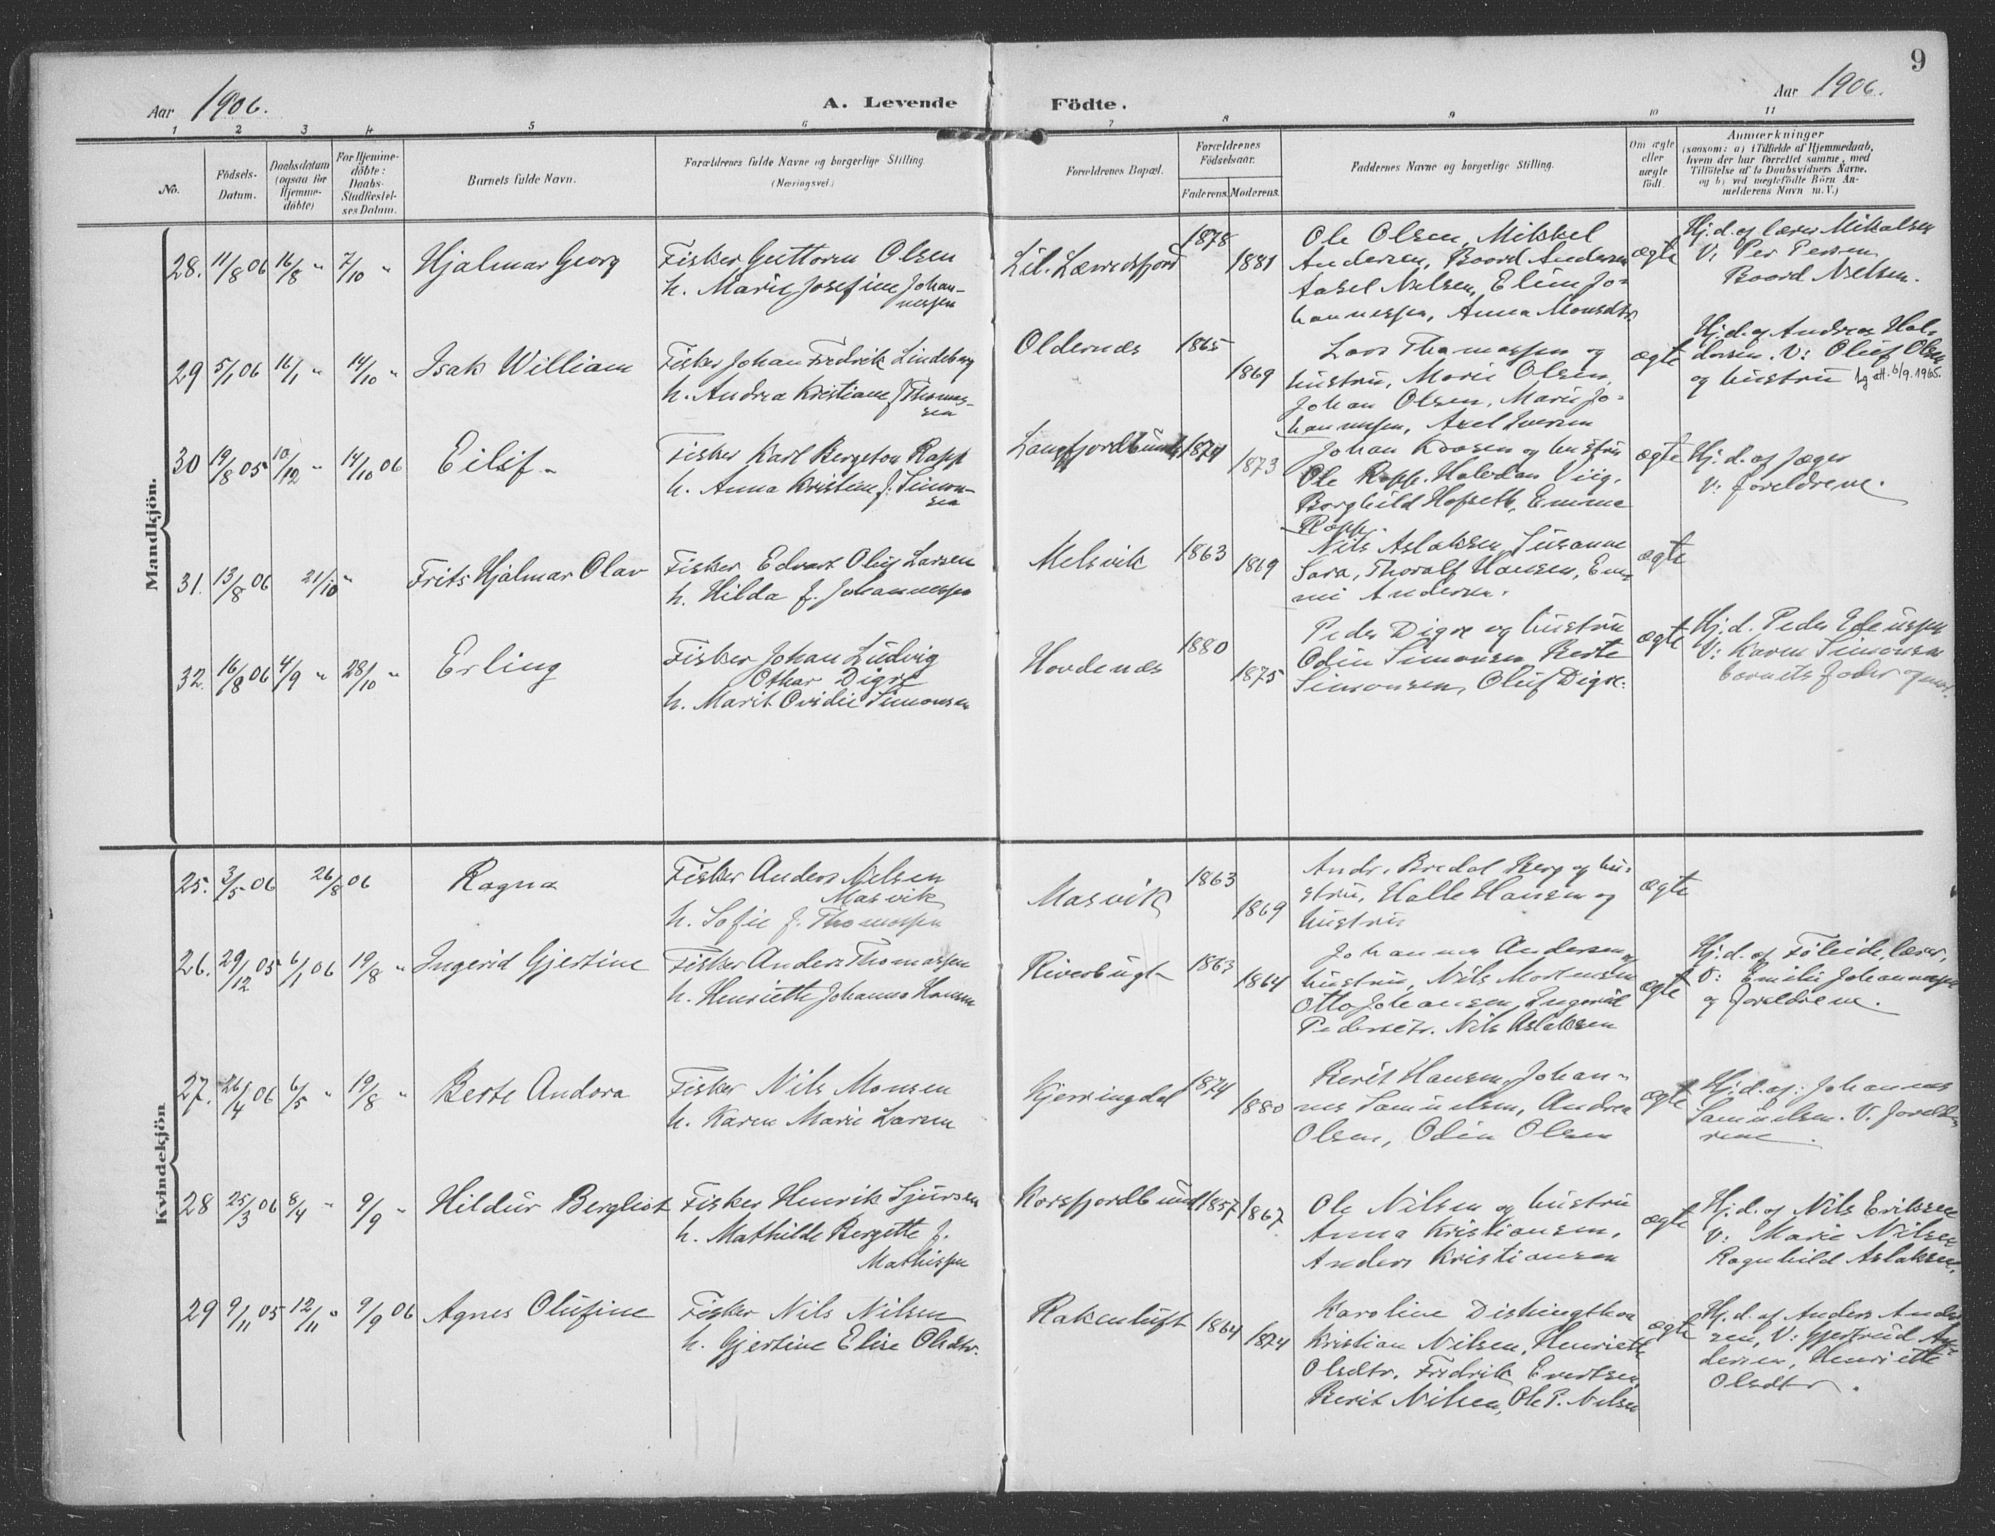 9
Aar 1906.
A. Levende Födte.
Aar 1906.
1 2 3 4 5 6 7 8 9 10 11
No.
Födsels-
Datum.
Daabsdatum
(ogsaa for
Hjemme-
döbte)
For Hjemme-
döbte:
Daabs-
Stadfæstel-
ses Datum.
Barnets fulde Navn.
Forældrenes fulde Navne og borgerlige Stilling.
(Næringsvei)
Forældrenes Bopæl.
Forældrenes
Födselsaar.
Faderens.
Moderens.
Faddernes Navne og borgerlige Stilling.
Om ægte
eller
uægte
født.
Anmærkninger
(saasom: a) i Tilfælde af Hjemmedaab,
hvem der har forrettet samme, med
Tilföielse af to Daabsvidners Navne,
og b) ved uægtefödte Börn An-
melderens Navn m. V.)
Mandkjön.
28. 11/8 06 16/8 " 7/10 " Hjalmar Georg
Fisker Guttorm Olsen
h. Marie Josefine Johan-
nessen
Lil. Lærredsfjord
1878
1881
Ole Olsen, Mikkel
Andersen, Boord Andersen
Aasel Nilsen, Elen Jo-
hannessen, Anna Monsdtr
ægte
Hj. d. af lærer Mikalsen
V: Per Persen
Boord Nielsen.
29 5/1 06 16/1 " 14/10 " Isak William
Fisker Johan Fredrik Lindeberg
h. Andrea Kristiane f. Thomas-
sen
Oldernæs
1865
1869
Lars Thomassen og
hustru, Marie Olsen,
Johan Olsen, Marie Jo-
hannessen, Axel Iversen
ægte
Hj. d. af Andreas Hal-
dorsen. V: Oluf Olsen
og hustru Lg att. 6/9. 1965.
30 19/8 05 10/12 " 14/10 06 Eilif
Fisker Karl Bergeton Rapp
h. Anna Kristine f. Simon-
sen
Langfjordbund
1874
1873
Johan Kroosen og hustru
Ole Rapp. Halvdan Viig,
Borghild Hofseth, Emma
Rapp.
ægte
Hj. d. af Jæger
V: Foreldrene.
31. 13/8 06 21/10 " Frits Hjalmar Olav
Fisker Edvart Oluf Larsen
h. Hilda f. Johannessen
Melsvik
1863
1869
Nils Aslaksen, Susanne
Sara, Thoralf Hansen, Em-
mi Andersen.
ægte
32. 16/8 06 4/9 " 28/10 " Erling
Fisker Johan Ludvig
Othar Digre
h. Marit Ovidie Simonsen
Hovdenæs
1880
1875
Peder Digre og hustru
Odin Simonsen, Berte
Simonsen, Oluf Digre.
ægte
Hj. d. Peder Edenssen
V: Karen Simonsen
barnets fader og mor.
Kvindekjön
25. 3/5 06 26/8 06 Ragna
Fisker Anders Nilsen
Masvik
h. Sofie f. Thomassen
Masvik
1863
1869
Andr. Bredal Berg og hu-
stru, Halle Hansen og
hustru
ægte
26. 29/12 05 6/1 06 19/8 " Ingerid Gjertine
Fisker Anders Thomassen
h. Henriette Johanna Hansen
Riverbugt
1863
1864
Johannes Andersen og
hustru, Nils Mortensen
Otto Johansen, Ingerid
Pedersdtr. Nils Aslaksen
ægte
Hj. d. af Föleide, lærer,
V: Emilie Johannessen
og foreldrene.
27. 26/4 06 6/5 " 19/8 " Berte Andora
Fisker Nils Monsen
h. Karen Marie Larsen
Kjerringdal
1874
1880
Berit Hansen, Johan-
nes Samuelsen, Andrea
Olsen, Odin Olsen
ægte
Hj. d. af: Johannes
Samuelsen. V. foreld-
rene.
28 25/3 06 8/4 " 9/9 " Hildur Bergliot
Fisker Henrik Sjursen
h. Mathilde Bergette f.
Mathissen
Korsfjordbund
1857
1867
Ole Nilsen og hustru
Anna Kristiansen,
Anders Kristiansen
ægte
Hj. d. af Nils Eriksen
V: Marie Nilsen
Ragnhild Aslaksen.
29 9/11 05 12/11 " 9/9 06 Agnes Olufine
Fisker Nils Nilsen
h. Gjertine Elise Olsdtr.
Rakenluft
1864
1874
Karoline
Kristian Nilsen, Henriette
Olsdtr. Fredrik Evertsen,
Berit Nilsen, Ole P. Nilsen
ægte
Hj. d. af Anders Ander-
sen, V: Gjertrud An-
dersen, Henriette
Olsdtr.